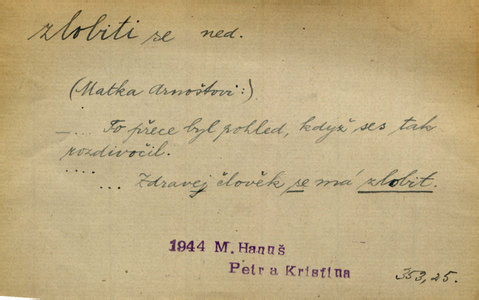 zlobiti se ned.
(Matka Arnoštovi:)
–... To přece byl pohled, když ses tak
rozdivočil.
.... Zdravej člověk se má zlobit.
1944 M. Hanuš
Petr a Kristina
353,25.